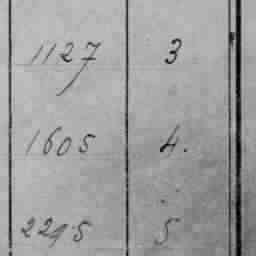 1127 3
1605 4.
2295 5